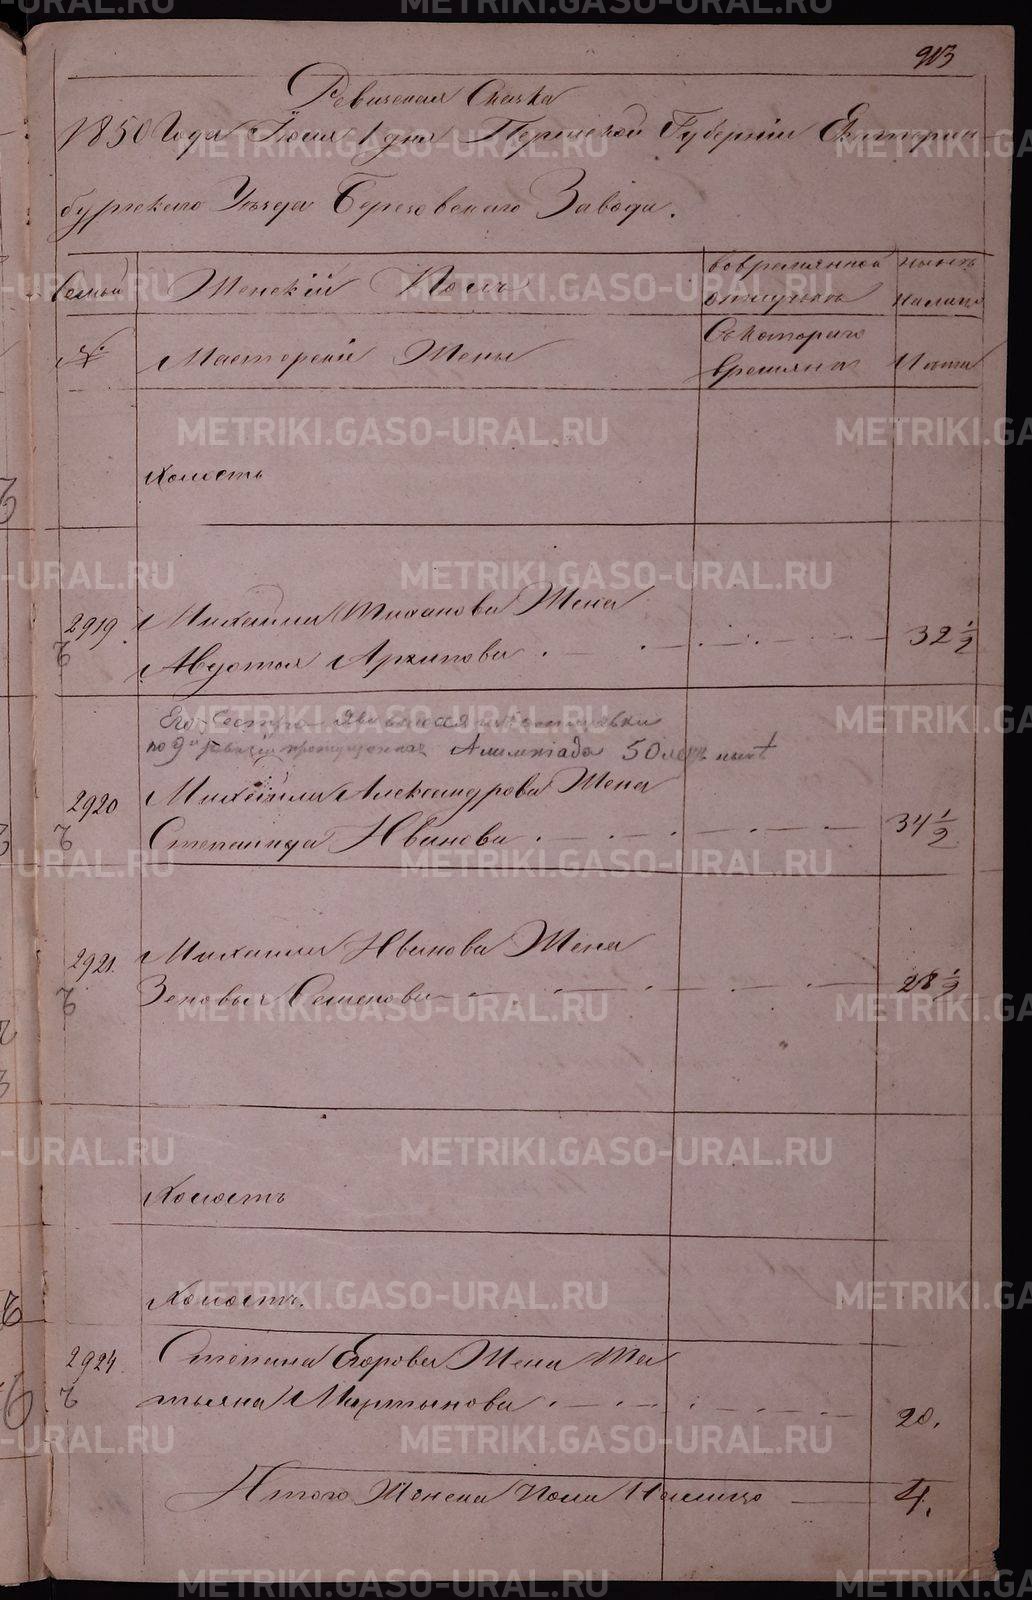 913
Ревизская Сказка
1850 Года Июля 1 дня Пермской Губернии Екатерин-
бургскаго Уѣзда Березовскаго Завода.
Семьи Женскій Полъ во временной отлучкѣ нынѣ на лицо
№ Мастерскіе Жены Съ котораго времяни Лѣта
холостъ
2919. Михаила Тиханова Жена
Авдотья Архипова 32 1/2
Его Сестра
по 9й ревизіи пропущенная Алимпіада 50 летъ
2920 Михайла Александрова Жена
Степанида Иванова 34 1/2
2921. Михаила Иванова Жена
Зеновья Семенова 28 1/2
Холостъ
Холостъ.
2924 Степана Егорова Жена Та
тьяна Мартынова 20.
Итого Женска Пола На лицо 4.
METRIKI.GASO-URAL.RU